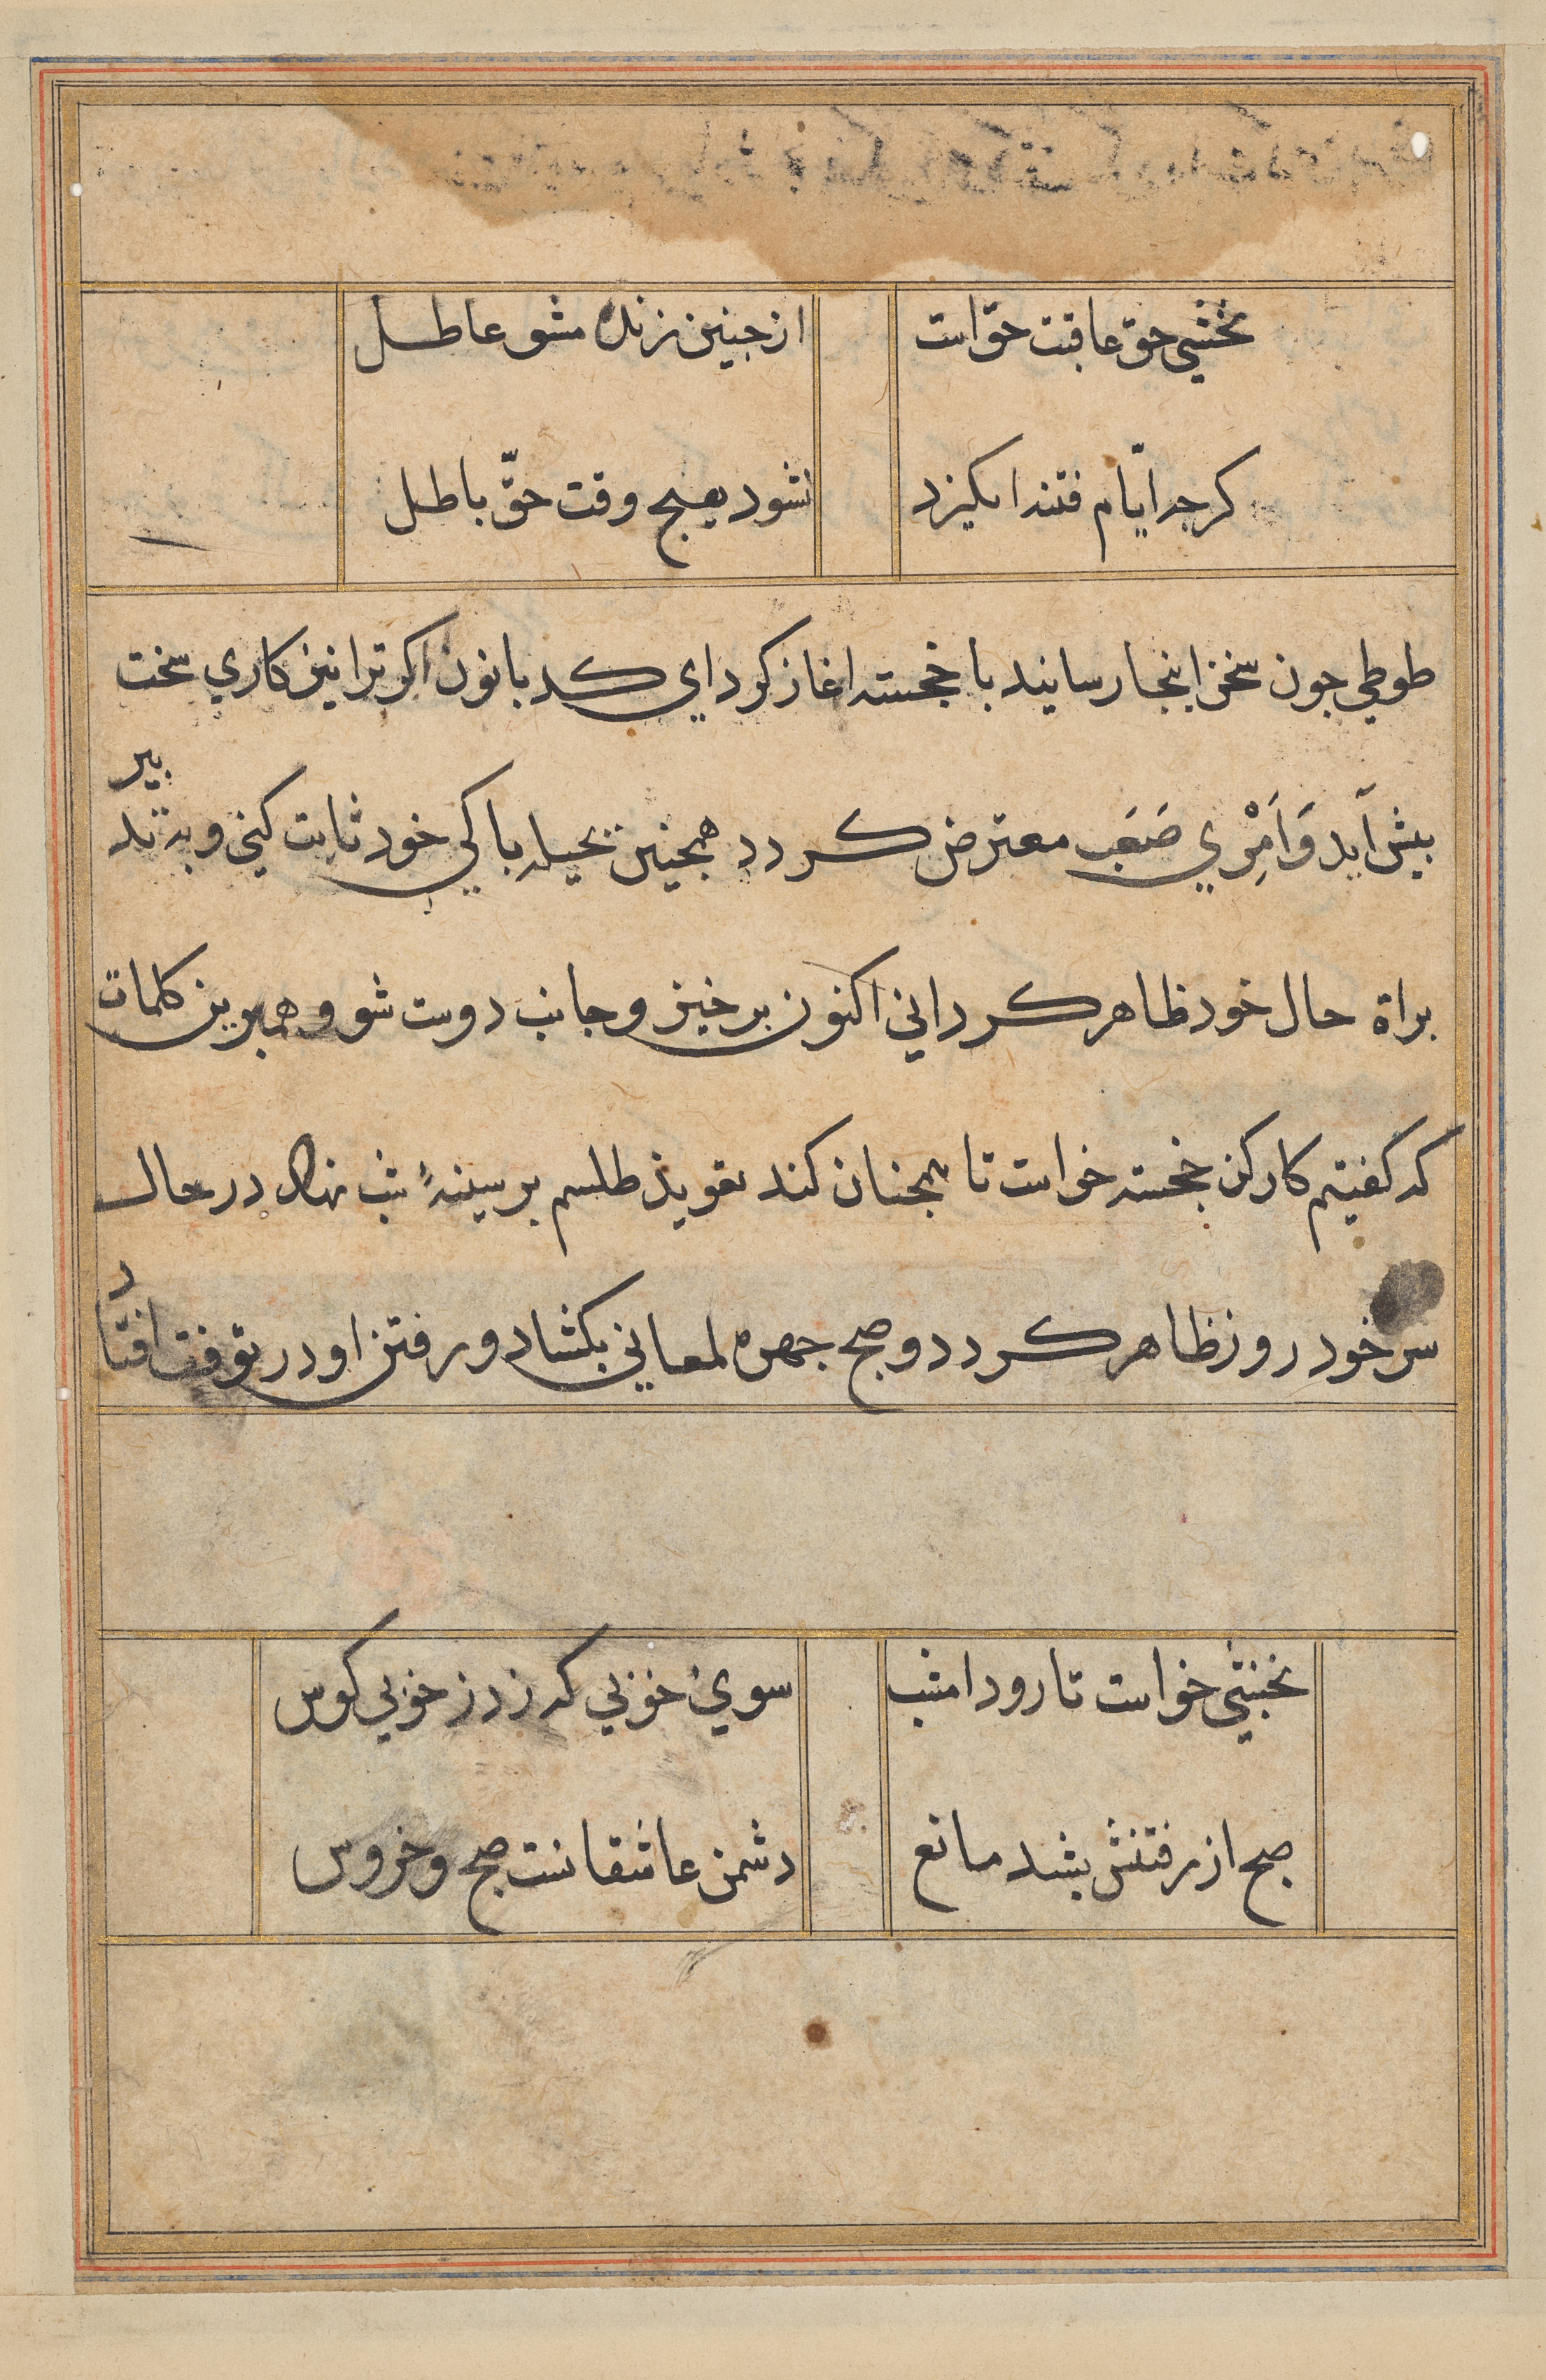 نخشبي حق عاقبت حق است از جنين زنده مشو عاطل
كرجه ايّام فتنه انكيزد نشود هيج وقت حقّ باطل
طوطي جون سخن اينجا رسانيد با خجسته اغاز كرد اي كدبانون اكر ترا نيز كاري سخت
بيش آيد وَاَمْرِي صَعَب معترض كردد همجنين بحيله باكي خود ثابت كني و بدتدبير
براة حال خود ظاهر كرداني اكنون برخيز و جانب دوست شو و همبرين كلمات
كه كفيتم كار كن خجسته خواست تا همجنان كند تعويذ طلسم بر سينهٔ شب نهاد در حال
سر خود روز ظاهر كردد و صبح جهره لمعاني بكشاد و رفتن او در توقف افتاد
نخشبي خواست تا رود امشب سوي خوبي كه زد ز خوبي كوس
صبح از رفتنش بشد مانع دشمن عاشقانست صبح و خروس